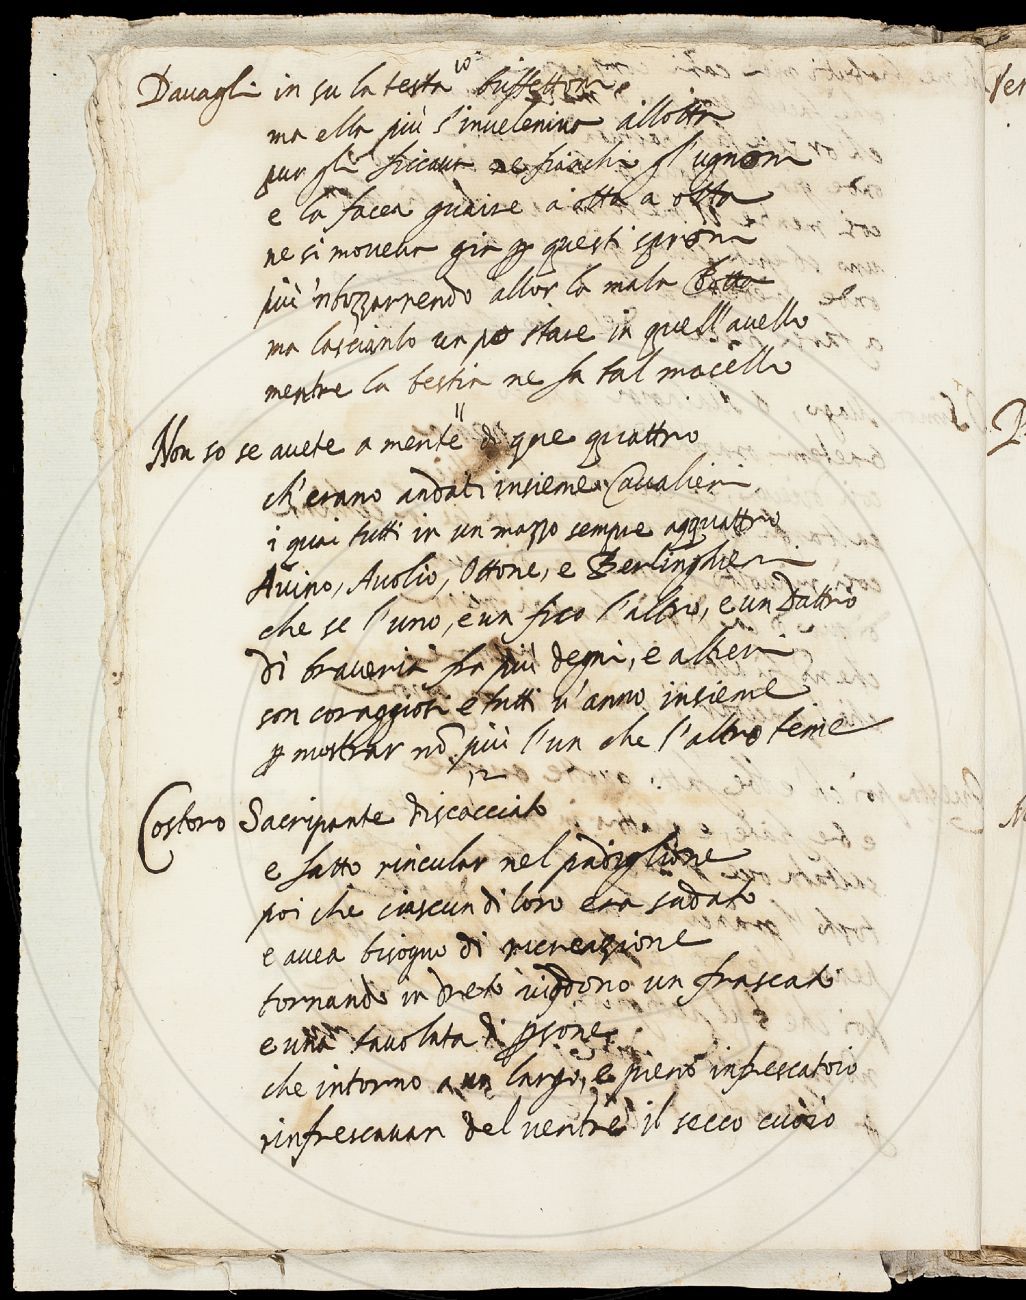 10
Dauagli in su la testa buffettoni
ma ella più s'inuelenina allotta
pur gli ficcaua ne fianchi gl'ugnoni
e la facea guaire a otta a otta
ne si moueua gia ꝑ questi sproni
più 'nbozzarrendo allor la mala Botta
ma lasciànlo un po stare in quell'auello
mentre la bestia ne fa tal macello
11
Non so se auete a mente di que quattro
ch'erano andati insieme Caualieri
i quai tutti in un mazzo sempre acquattro
Auino, Auolio, Ottone, e Berlinghieri
che se l'uno, è un fico l'altro, e un Dattro
di braueria fra più degni, e alteri
son coraggiosi e tutti u'anno insieme
ꝑ mostrar nõ più l'un che l'altro teme
12
Costoro Sacripante discacciato
e fatto rincular nel padiglione
poi che ciascun di loro era sudato
e auea bisogno di ricreazione
tornando in dreto uiddono un frascato
e una tauolata di ꝑsone
che intorno a un largo, e pieno infrescatoio
rinfrescauan del uentre il secco cuoio